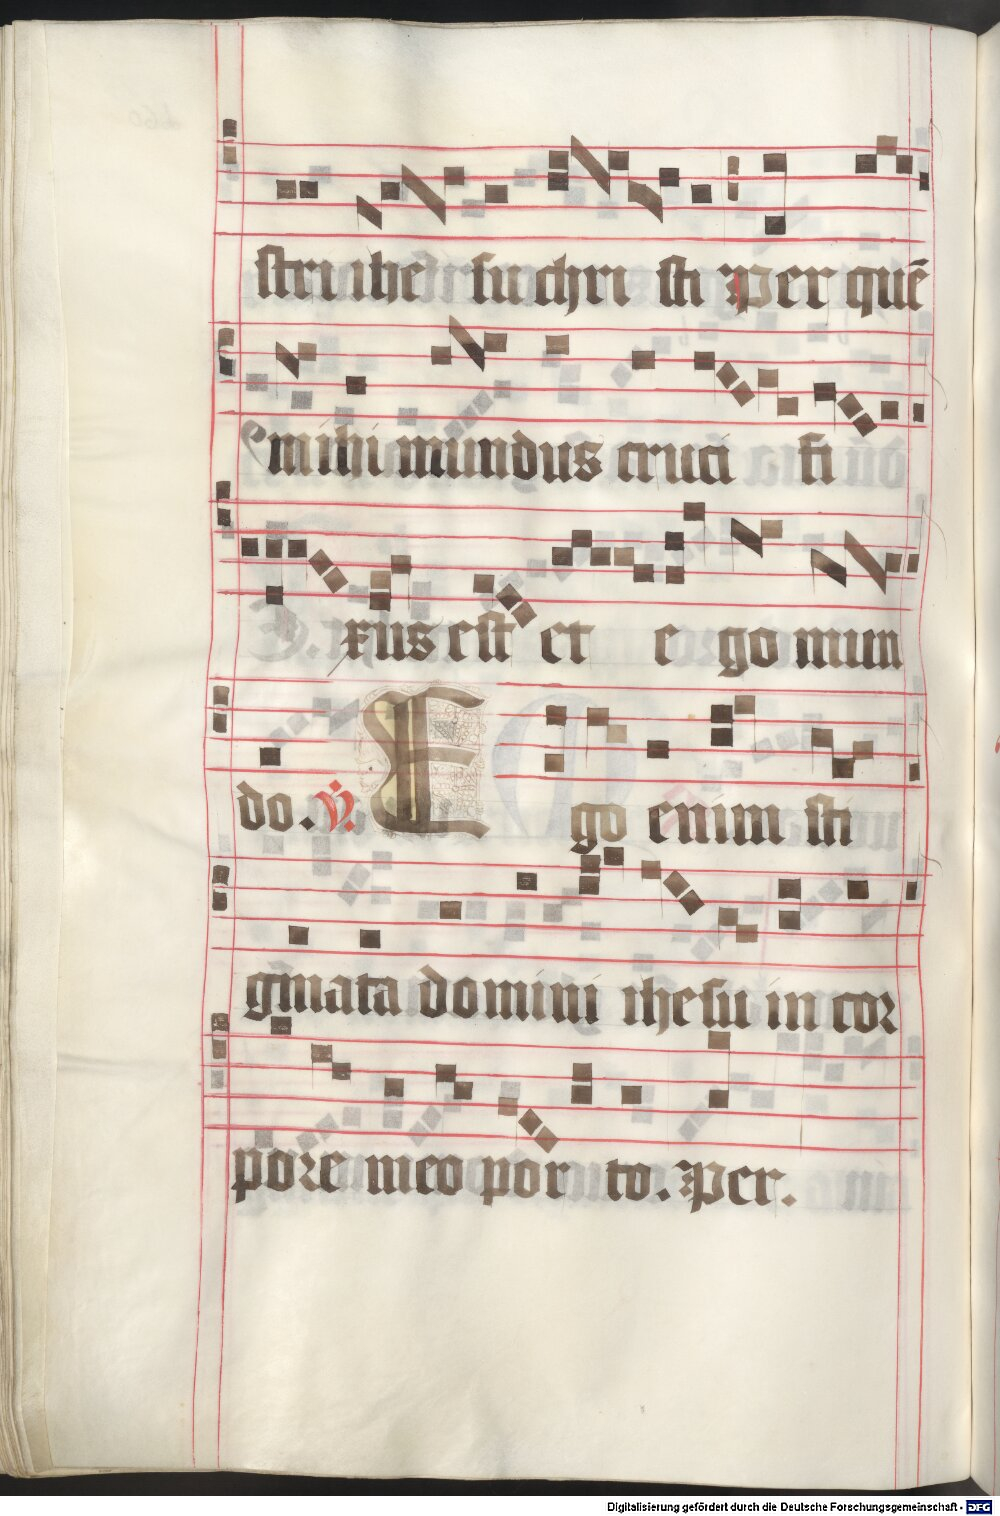 stri ihe su chri sti Per quē
mihi mundus cruci fi
xus est et e go mun
do. ℣. Ego enim sti
gmata domini ihesu in cor
pore meo por to. Per.
Digitalisierung gefördert durch die Deutsche Forschungsgemeinschaft - DFG